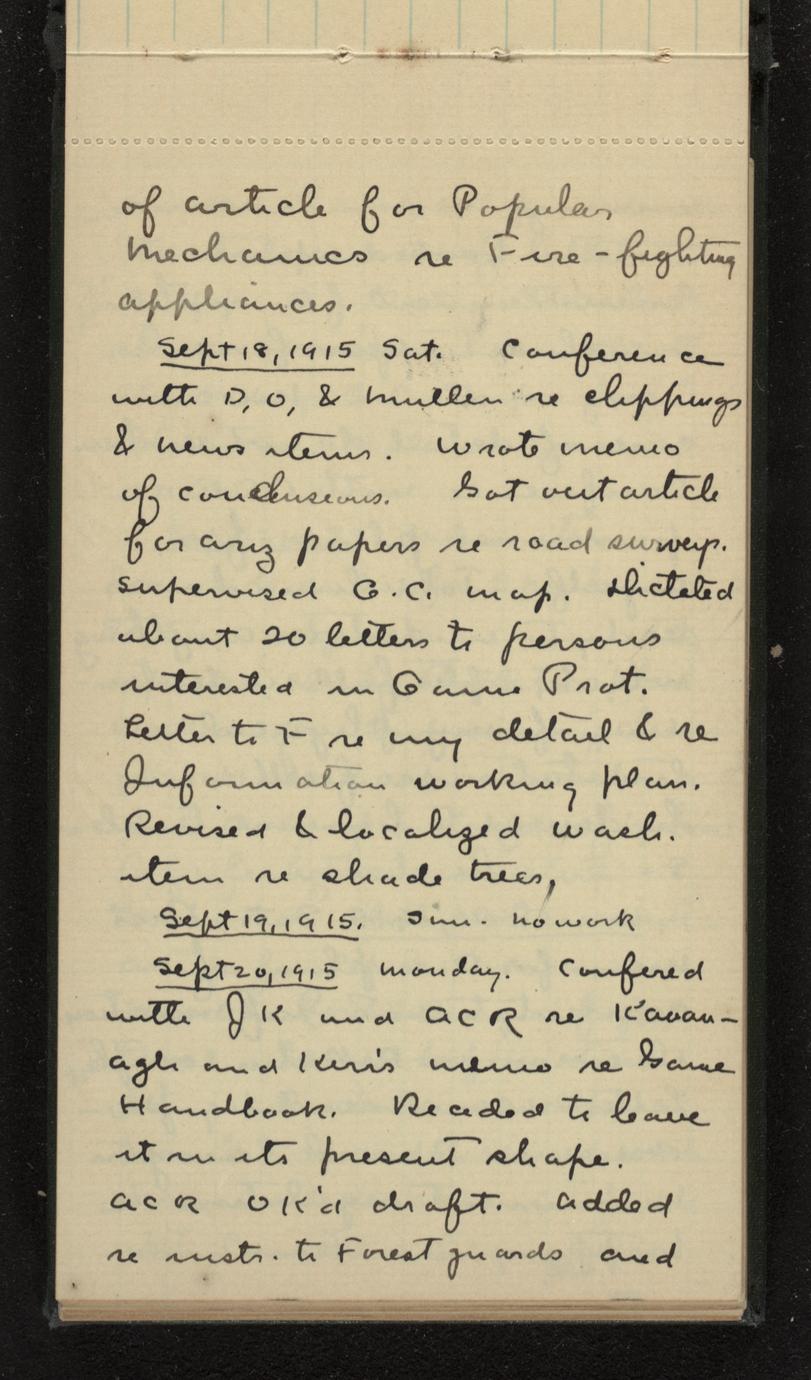 of article for Popular
Mechanics re Fire-fighting
appliances.
Sept 18, 1915 Sat. Conference
with D, O, & Mullen re clippings
& news items. Wrote memo
of conclusions. Got out article
for Ariz papers re road surveys.
Supervised G.C. map. Dictated
about 20 letters to persons
interested in Game Prot.
Letter to F re my detail & re
Information working plan.
Revised & localized Wash.
item re shade trees,
Sept 19, 1915. Sun. No work
Sept 20, 1915 Monday. Confered
with JK and ACR re Kavan-
agh and Kerr's memo re Game
Handbook. Decided to leave
it in its present shape.
ACR OK'd draft. Added
re instr. to Forest guards and